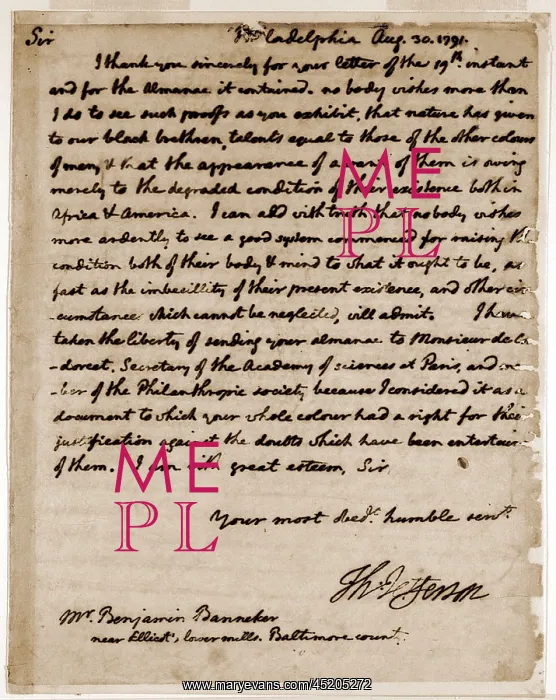 Sir Philadelphia Aug. 30. 1791.
I thank you sincerely for your letter of the 19th. instant
and for the Almanac it contained. no body wishes more than
I do to see such proofs as you exhibit, that nature has given
to our black brethren, talents equal to those of the other colours
of men, & that the appearance of a want of them is owing
merely to the degraded condition of their existence both in
Africa & America. I can add with truth that no body wishes
more ardently to see a good system commenced for raising the
condition both of their body & mind to what it ought to be, as
fast as the imbecillity of their present existence, and other cir
-cumstance which cannot be neglected, will admit. I have
taken the liberty of sending your almanac to Monsieur de
-dorcet, Secretary of the Academy of sciences at Paris, and
-ber of the Philanthropic society because I considered it as a
document to which your whole colour had a right for their
justification against the doubts which have been entertain
of them. I am with great esteem, Sir
Your most obedt. humble servt.
Th: Jefferson
Mr. Benjamin Banneker
near Ellicot's, lower mills. Baltimore count
ME
PL
ME
PL
www.maryevans.com/45205272